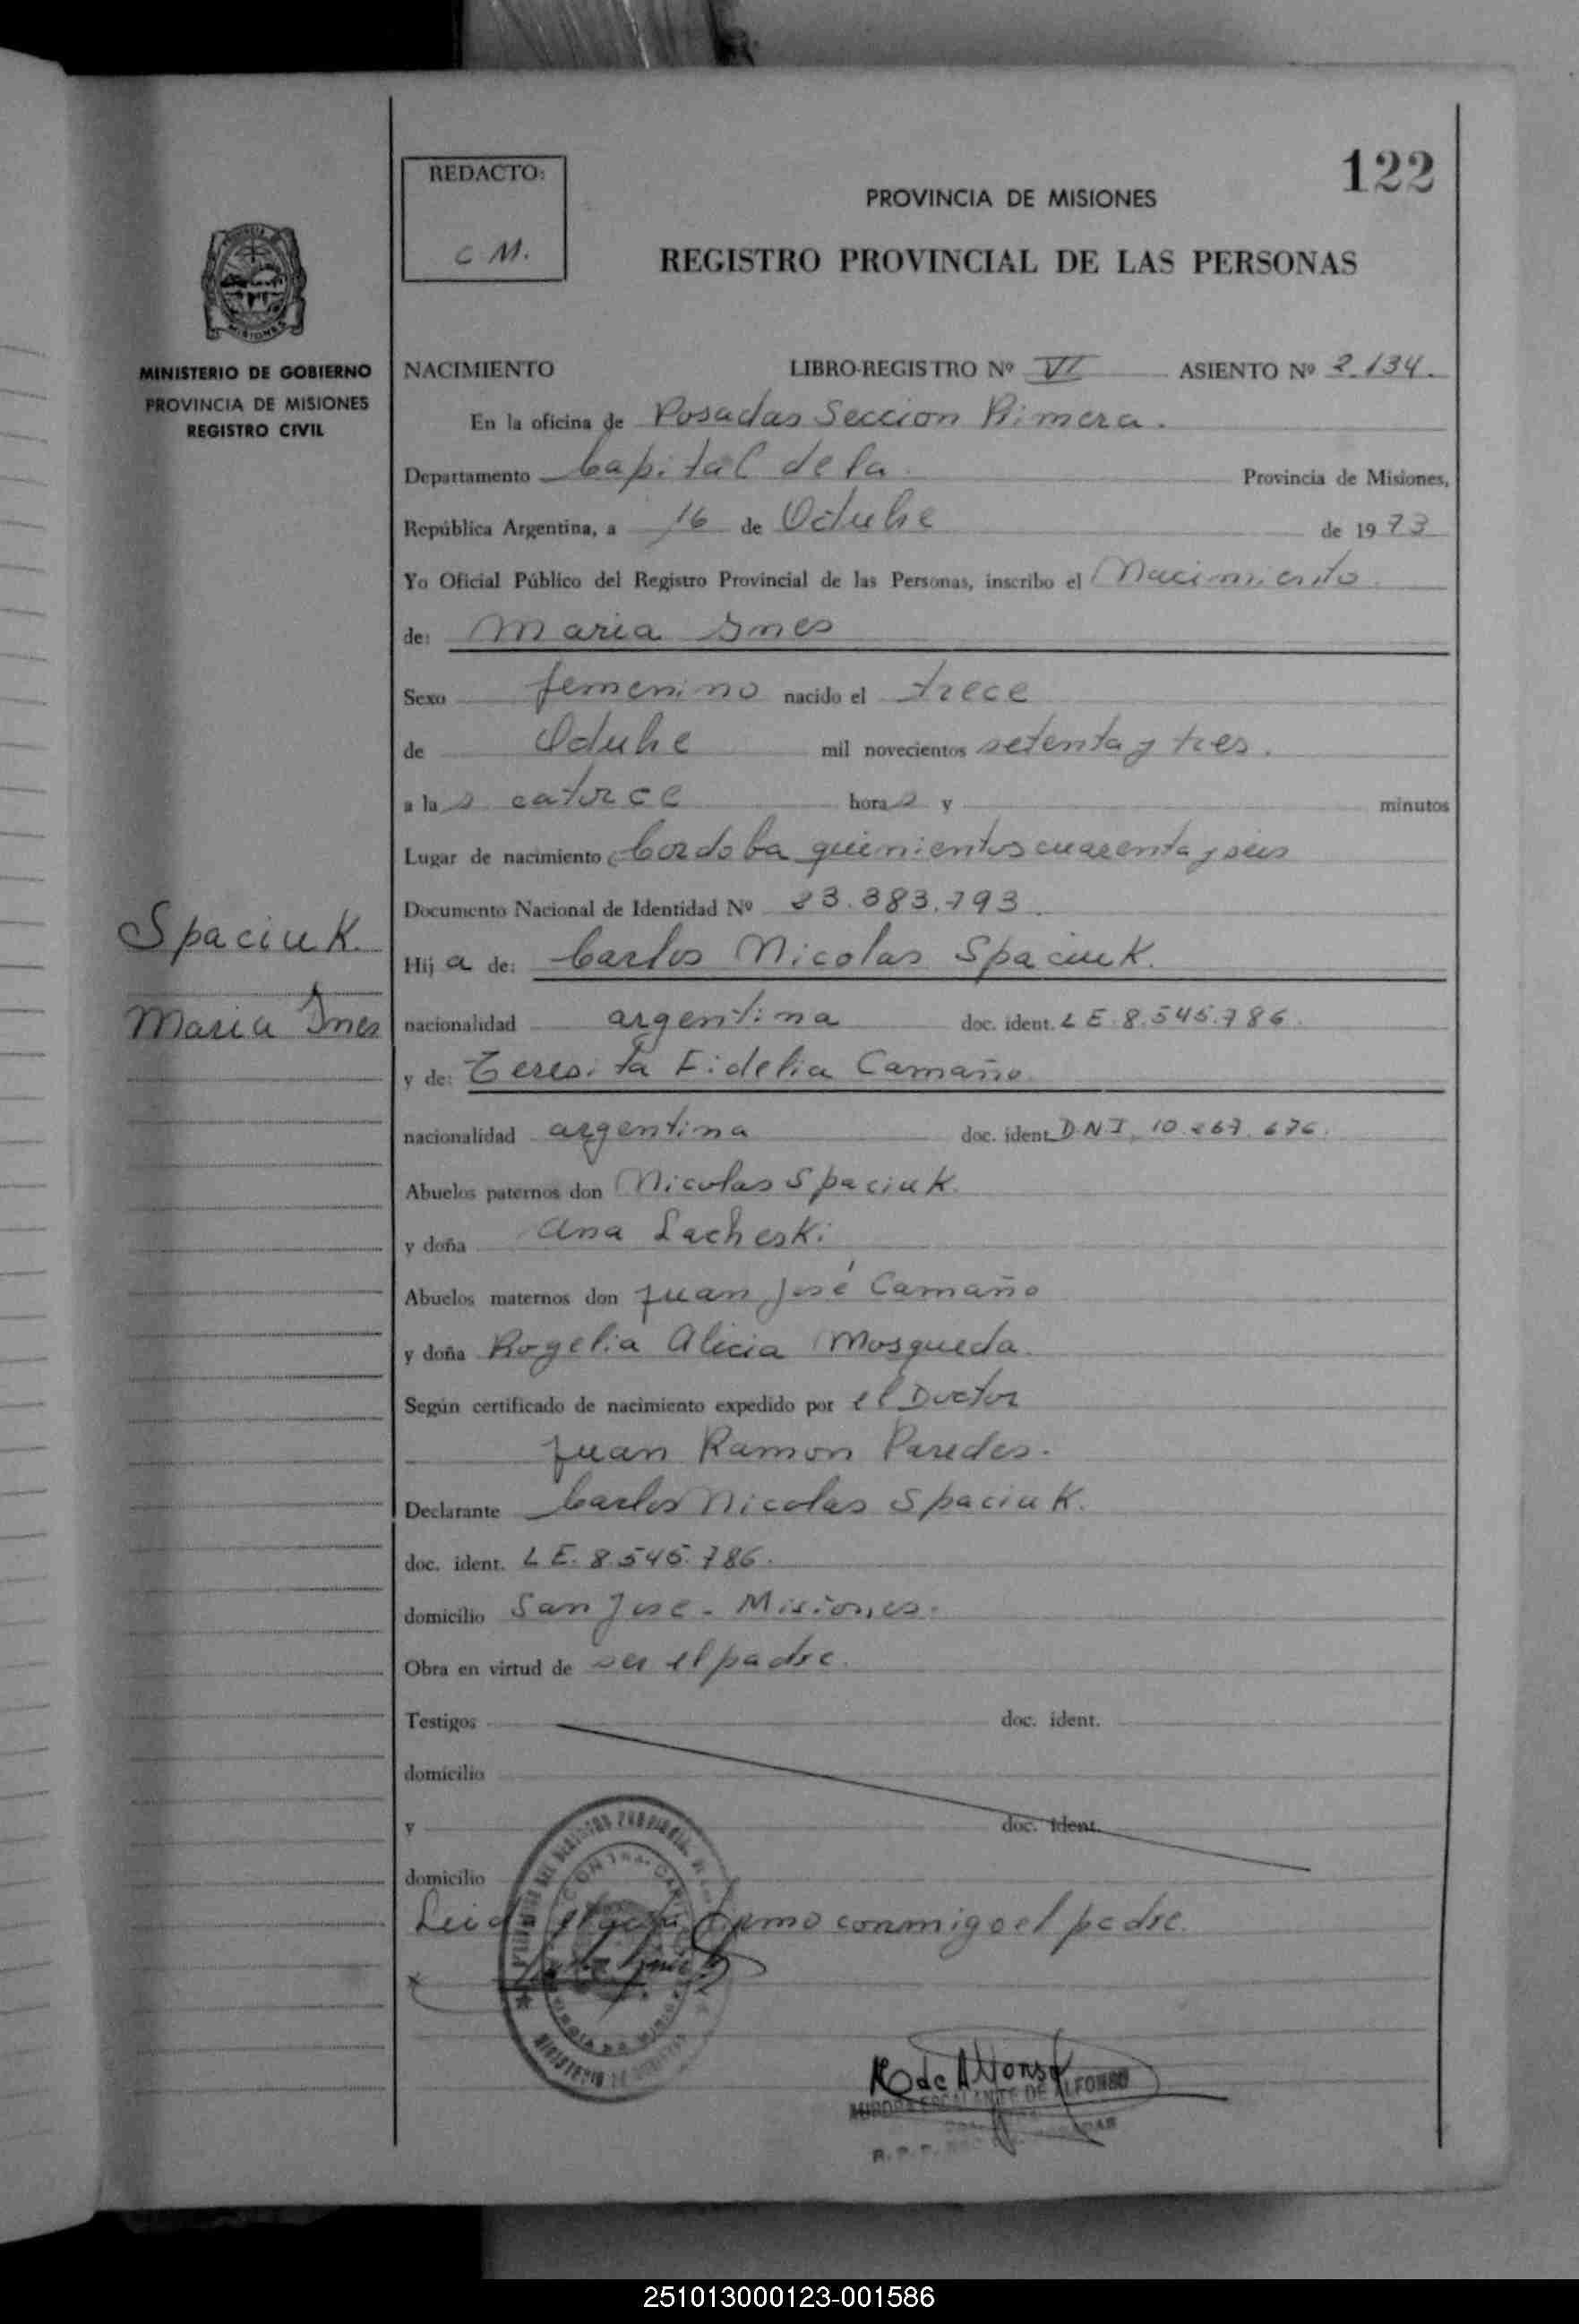 122
REDACTO:
C. M.
PROVINCIA DE MISIONES
REGISTRO PROVINCIAL DE LAS PERSONAS
MINISTERIO DE GOBIERNO
PROVINCIA DE MISIONES
REGISTRO CIVIL
NACIMIENTO LIBRO-REGISTRO Nº VI ASIENTO Nº 2.134.
En la oficina de Posadas Seccion Primera.
Departamento Capital de la Provincia de Misiones,
República Argentina, a 16 de Octubre de 1973
Yo Oficial Público del Registro Provincial de las Personas, inscribo el Nacimiento
de: Maria Ines
Sexo femenino nacido el trece
de Octubre mil novecientos setenta y tres.
a las catorce horas y minutos
Lugar de nacimiento Cordoba quinientos cuarenta y seis
Documento Nacional de Identidad Nº 23.383.793.
Spaciuk
Maria Ines
Hija de: Carlos Nicolas Spaciuk.
nacionalidad argentina doc. ident. LE. 8.545.786.
y de: Teresita Fidelia Camaño
nacionalidad argentina doc. ident. DNI. 10.267.676.
Abuelos paternos don Nicolas Spaciuk.
y doña Ana Lacheski
Abuelos maternos don Juan José Camaño
y doña Rogelia Alicia Mosqueda.
Según certificado de nacimiento expedido por el Doctor
Juan Ramon Paredes.
Declarante Carlos Nicolas Spaciuk.
doc. ident. LE. 8.545.786.
domicilio San Jose - Misiones.
Obra en virtud de ser el padre.
Testigos doc. ident.
domicilio
y doc. ident.
domicilio
Leida el acta firmo conmigo el padre.
R de Alfonso
ESCALANTE DE ALFONSO
251013000123-001586